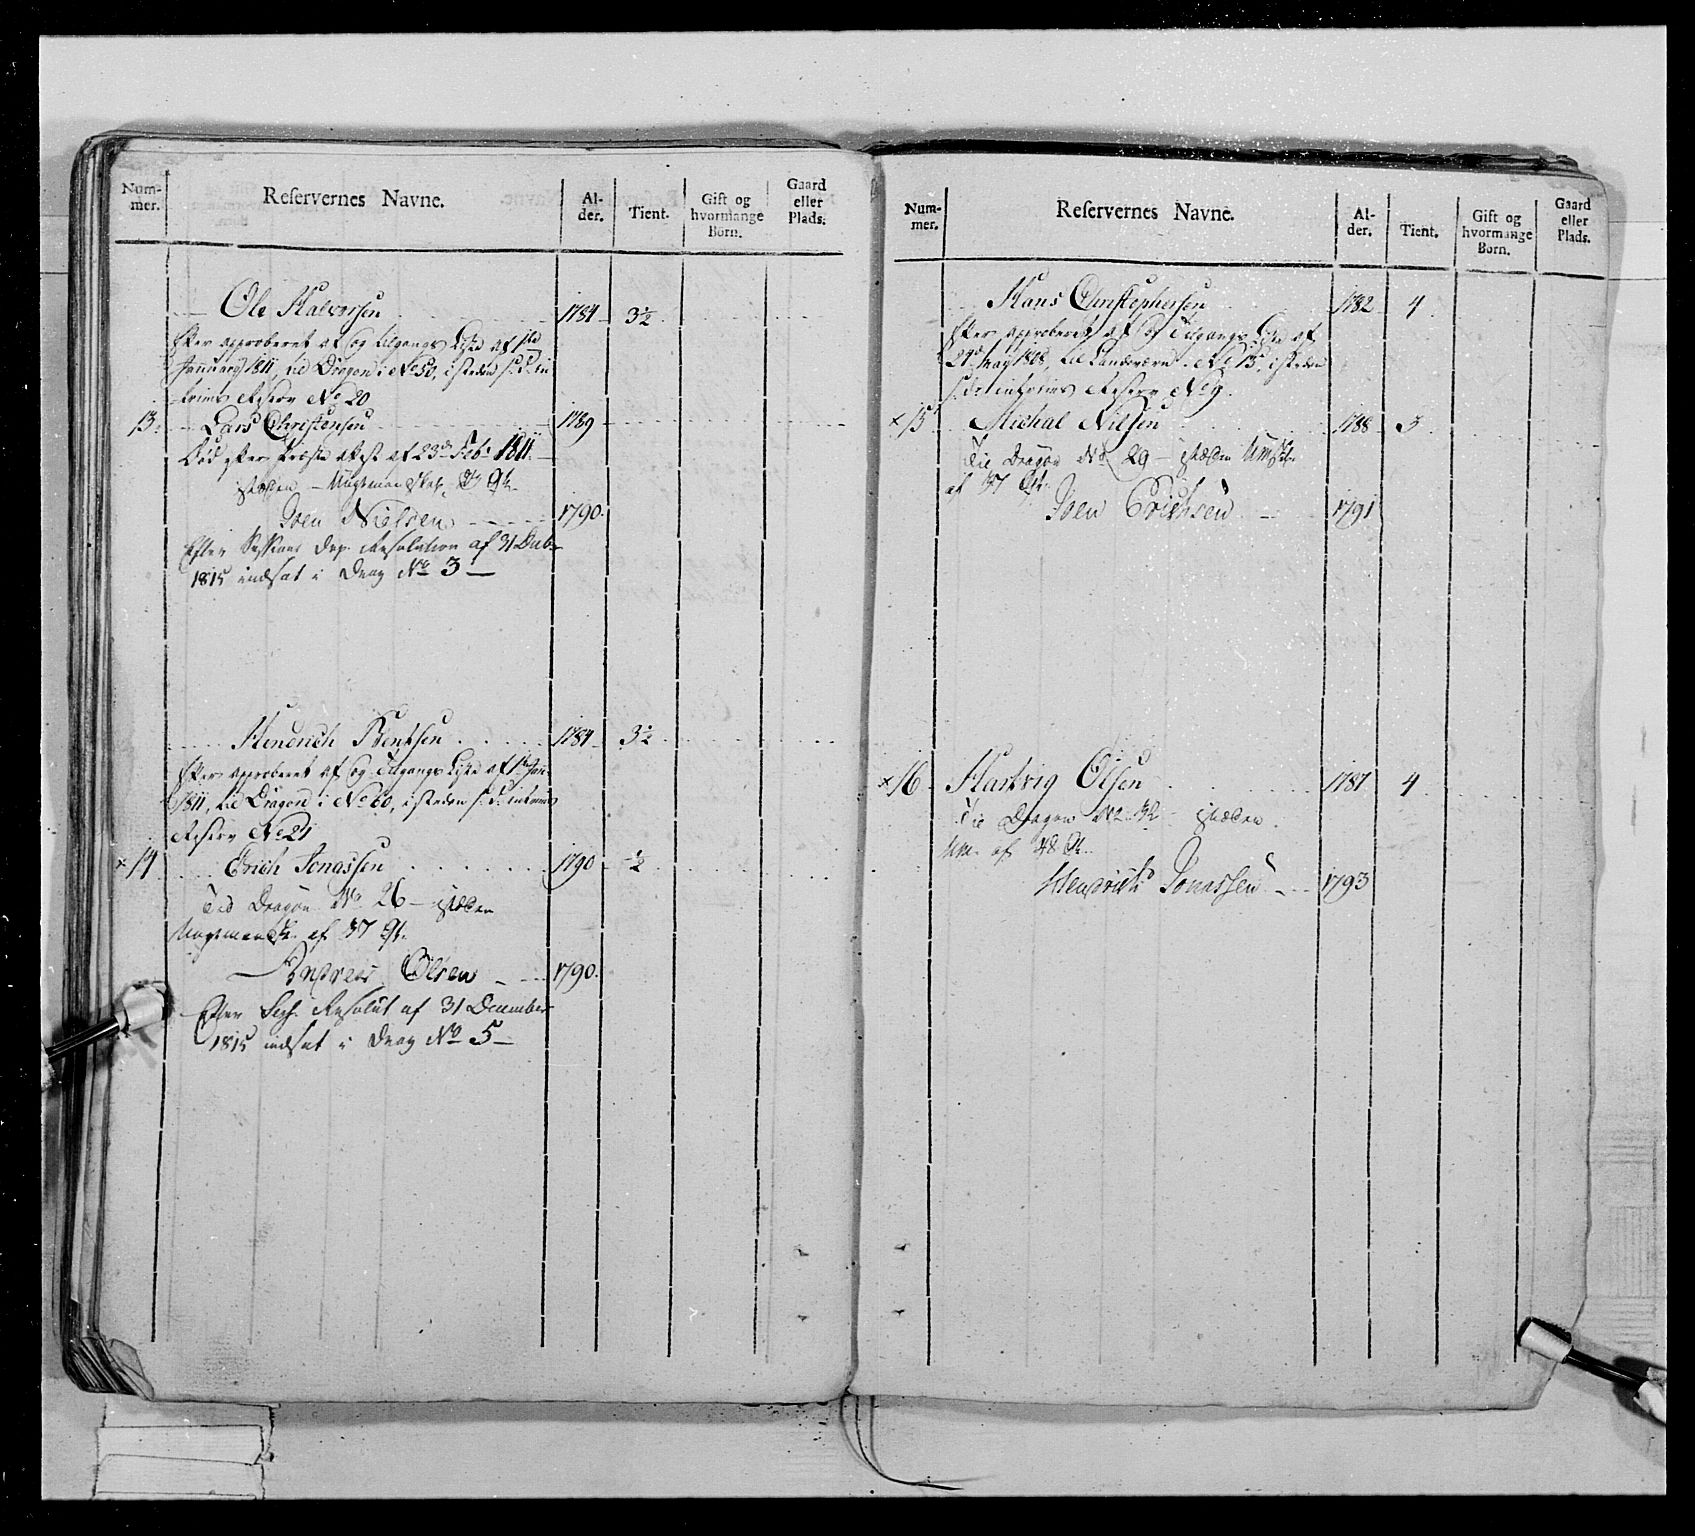 Num-
mer.
Reservernes Navne.
Al-
der.
Tient.
Gift og
hvormange
Børn.
Gaard
eller
Plads.
Ole Halvorsen 1784 3½
Efter approberet af og Tilgangs Liste af 1ste
Januarj 1811, til Dragon i No 50, isteden s: d: in
terims Reserv No 20
13. Lars Christensen 1789
Død efter Præste Attest af 23de Feb: 1811
isteden
Joen Nielsen 1790.
Efter Sessions Dep. Resolution af 31 Decbr
1815 indsat i Drag No 3
Hendrich Bentsen 1784 3½
Efter approberet af og Tilgangs Liste af 1ste Jan:
1811, til Dragon i No 60, isteden s: d: interims
Reserv No 21
× 14 Erich Jonassen 1790 ½
Til Dragon No 26 isteden
af 37 Gl.
Andreas Olsen 1790.
Efter Sess. Resolut af 31 December
1815 indsat i Drag No 5
Num-
mer.
Reservernes Navne.
Al-
der.
Tient.
Gift og
hvormange
Børn.
Gaard
eller
Plads.
Hans Christophersen 1782 4
Efter approberet af og Tilgangs Liste af
29de May 1808, til Landeværn No 15, isteden
s: d: interims Reserv No 9
× 15 Michal Nilsen 1788 3
Til Dragon No 29 isteden
af 37 Gl.
Joen Erichsen 1791
× 16 Hartvig Olsen 1787 4
Til Dragon No 32 isteden
af 38 Gl.
Hendrich Jonassen 1793